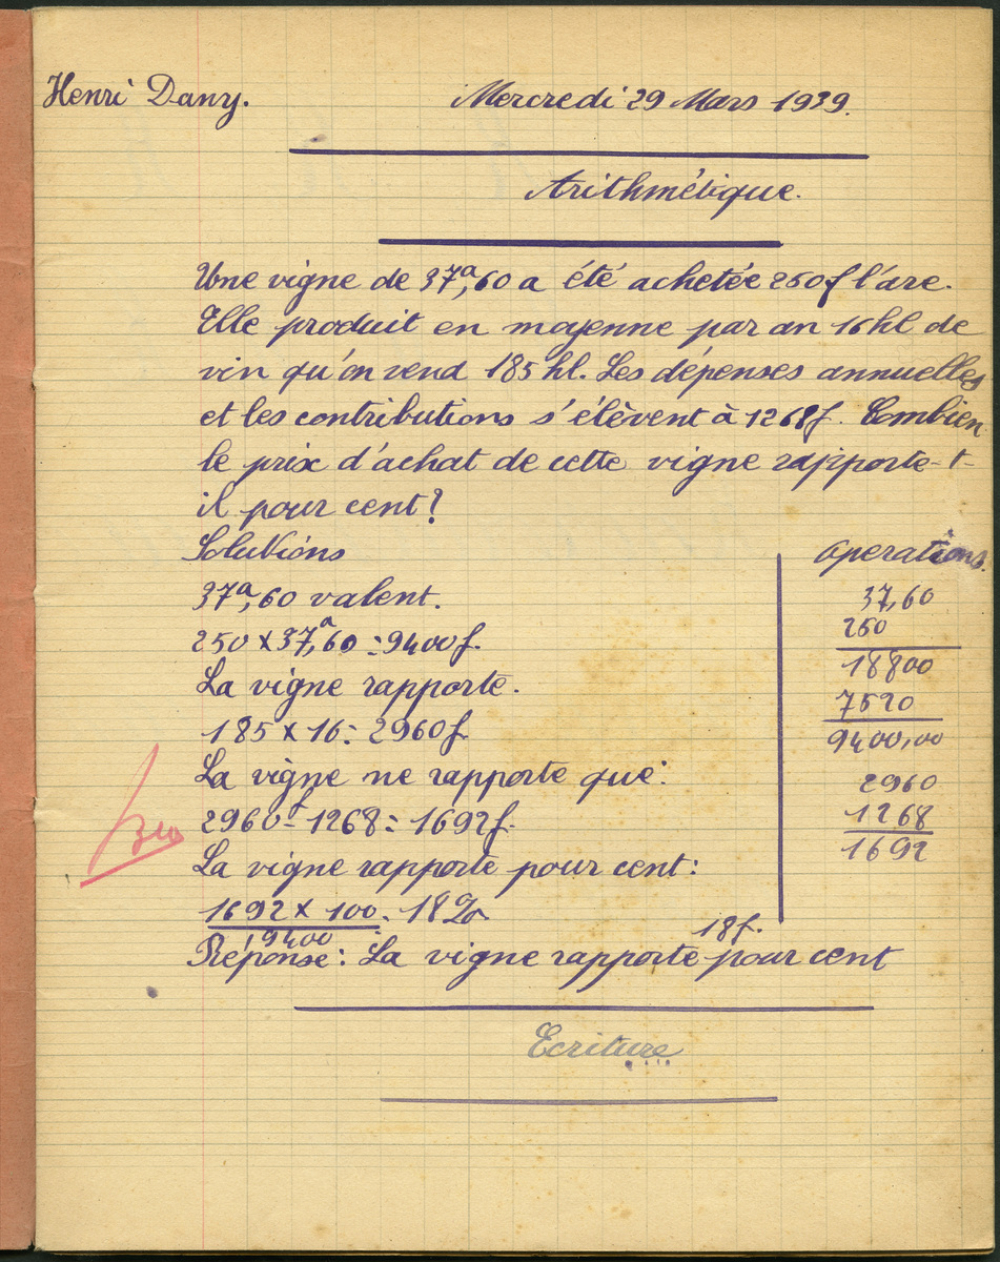 Henri Dany.
Mercredi 29 Mars 1939.
Arithmétique.
Une vigne de 37ª,60 a été achetée 250f l'are.
Elle produit en moyenne par an 16 hl de
vin qu'on vend 185 hl. Les dépenses annuelles
et les contributions s'élèvent à 1268f. Combien
le prix d'achat de cette vigne rapporte-t-
il pour cent?
Solutions
37ª,60 valent.
250 x 37ª,60 = 9400f.
La vigne rapporte.
185 x 16 = 2960f
La vigne ne rapporte que:
2960 - 1268 = 1692f.
La vigne rapporte pour cent:
1692 x 100 = 18%
9400
18f.
Réponse: La vigne rapporte pour cent
operations.
37,60
250
18800
7520
9400,00
2960
1268
1692
Ecriture